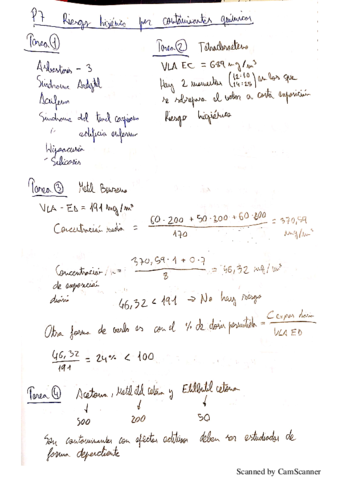 P7 Riesgo higiénico por contaminantes químicos
Tarea 1
Asbestosis - 3
Síndrome
Síndrome del túnel carpiano
edificio enfermo
Hipoacusia
- Silicosis
Tarea 2
VLA EC = mg/m³
Hay 2 momentos (12:10 14:25) en los que
se sobrepasa el valor a corta exposición
Riesgo higiénico
Tarea 3 Metil Benceno
VLA - ED = 191 mg/m³
Concentración media = 60·200 + 50·200 + 60·200 / 170 = 370,59 mg/m³
Concentración
de exposición
diaria
= 370,59·1 + 0·7 / 8 = 46,32 mg/m³
46,32 < 191 → No hay riesgo
Otra forma de verlo es con el % de dosis permitida = / VLA ED
46,32 / 191 = 24% < 100
Tarea 4 Acetona, Metil etil cetona y Etilbutil cetona
↓ ↓ ↓
500 200 50
Son contaminantes con efectos aditivos deben ser estudiados de
forma dependiente
Scanned by CamScanner